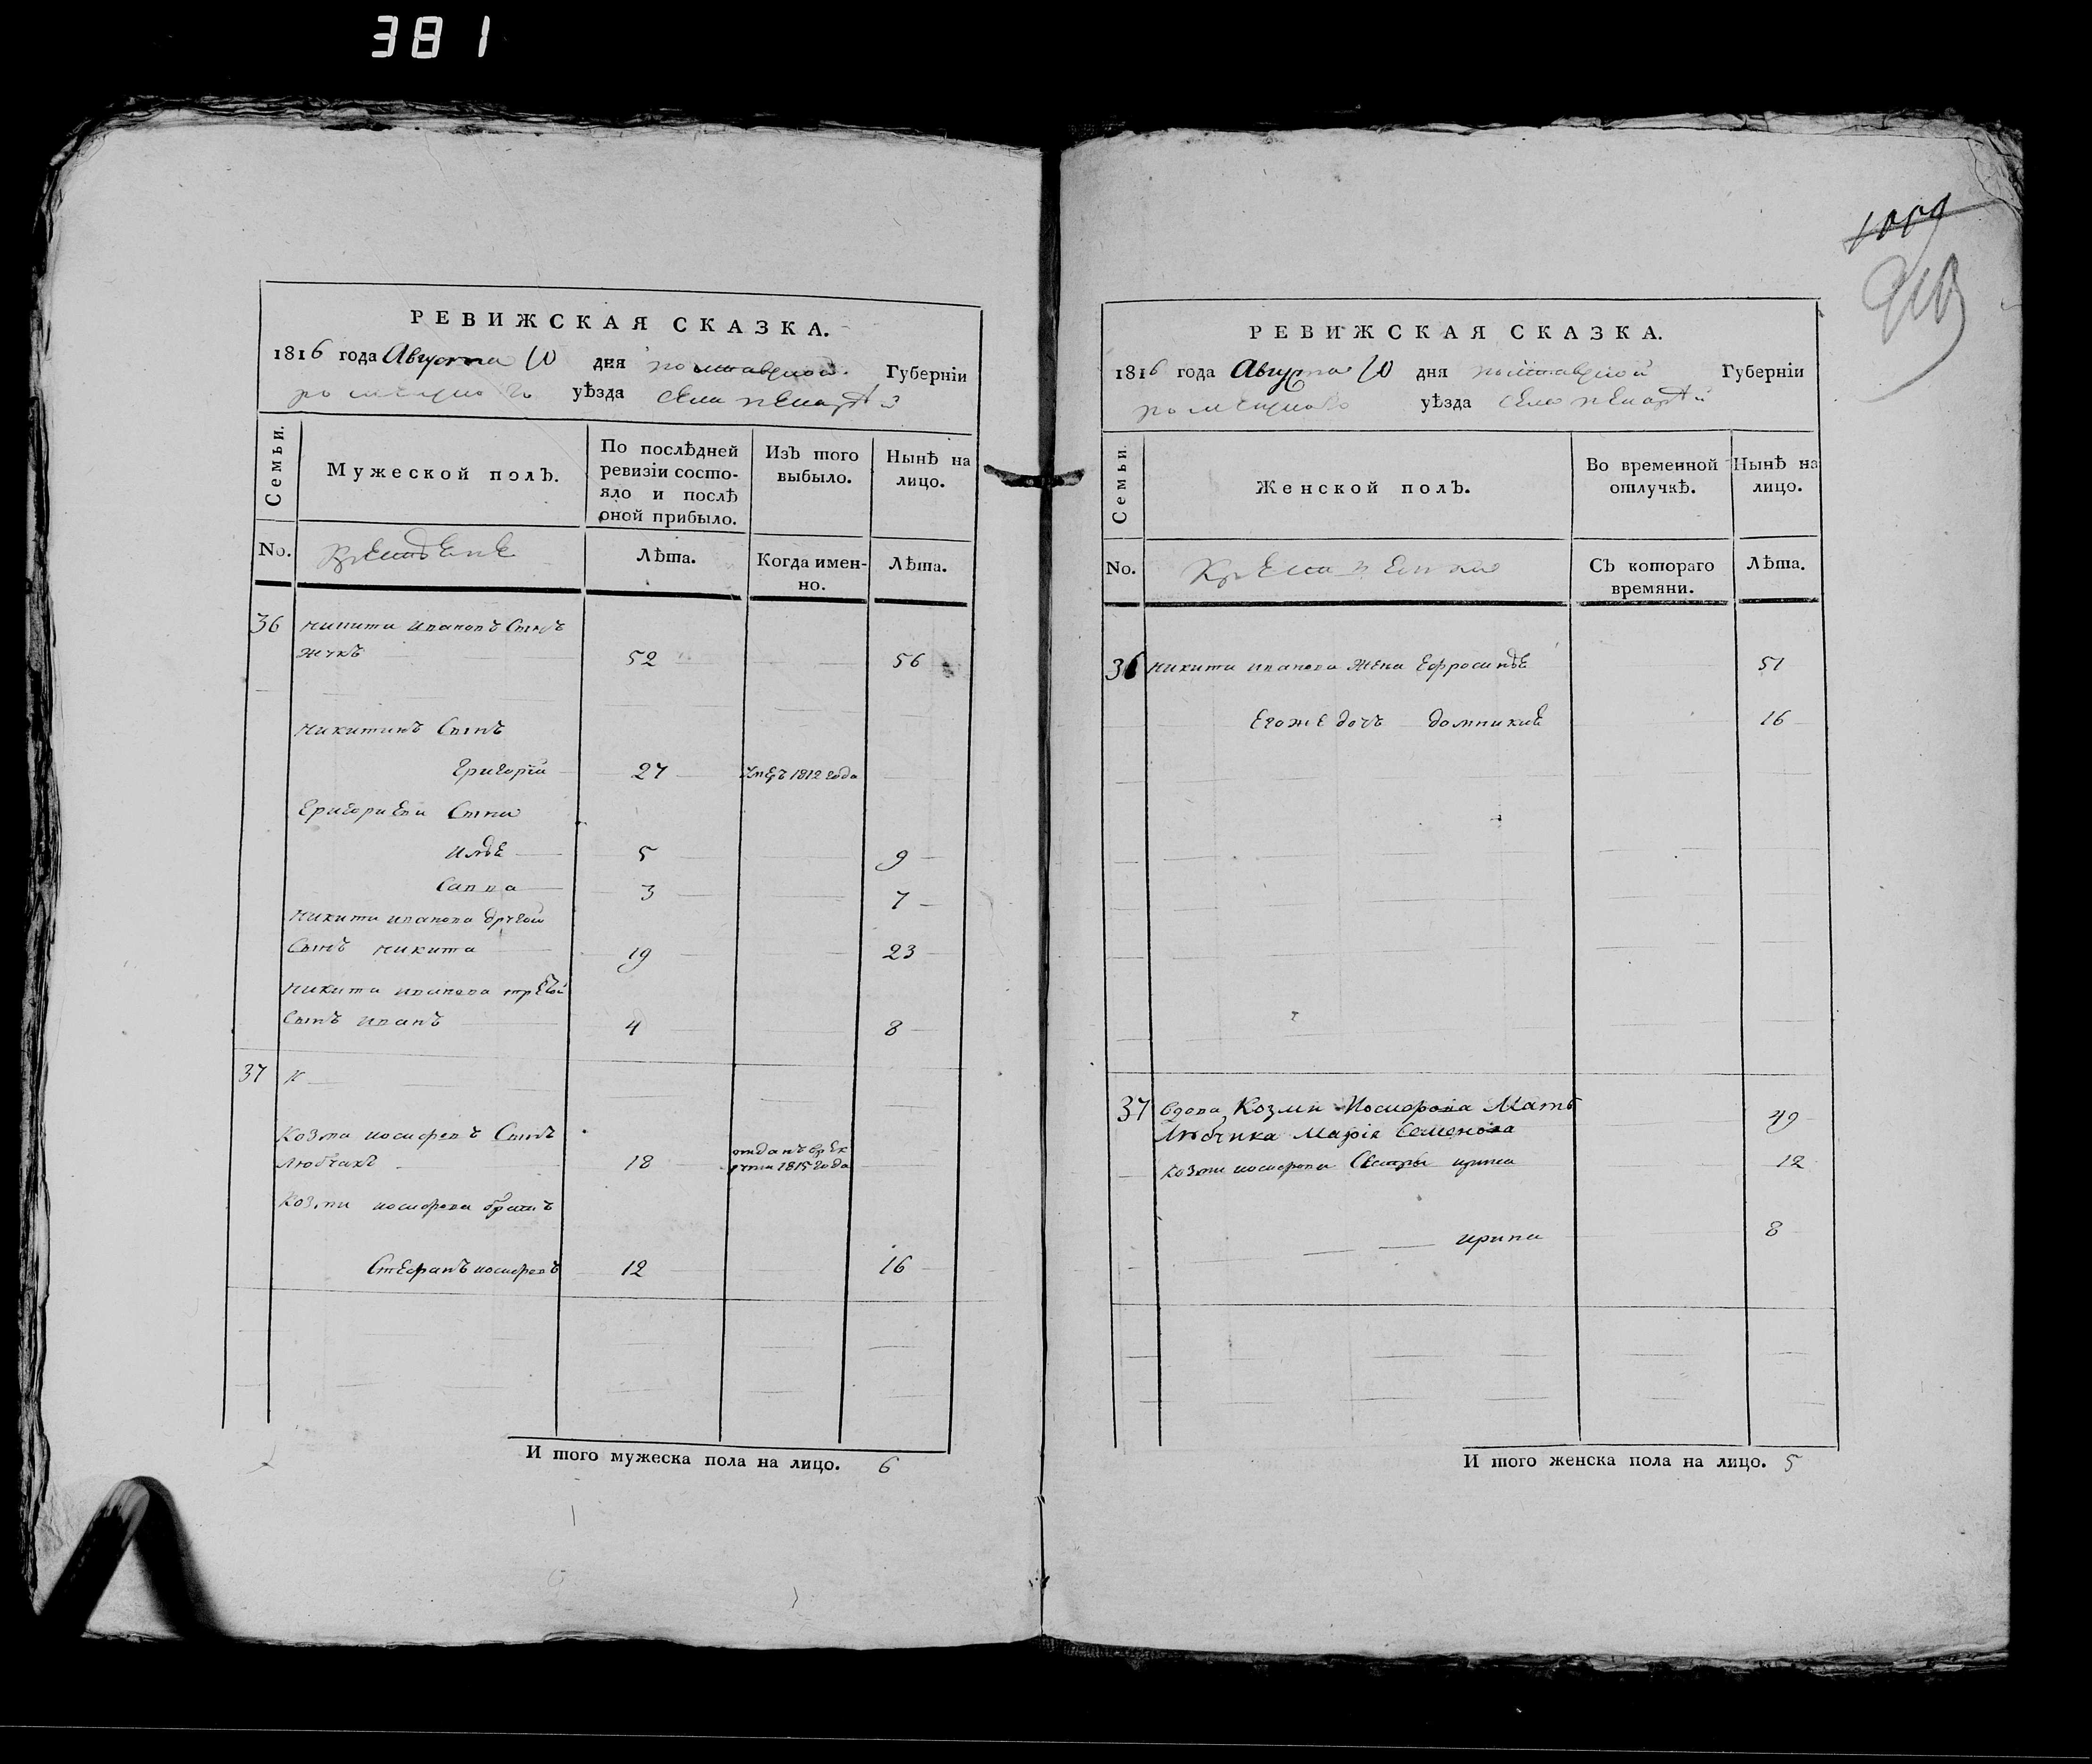 381
РЕВИЖСКАЯ СКАЗКА.
1816 года Августа 10 дня полтавской Губерніи
роменского уѣзда села
Семьи.
Мужеской полъ.
По послѣдней ревизіи состояло и послѣ оной прибыло.
Изъ того выбыло.
Нынѣ на лицо.
No.
Лѣта.
Когда именно.
Лѣта.
36 никита ивановъ Сынъ
жукъ 52 56
никитинъ Сынъ
григорій 27 умеръ 1812 года
григориева Сыны
илья 5 9
Савва 3 7
никиты иванова другой
Сынъ никита 19 23
никиты иванова третой
Сынъ иванъ 4 8
37 к
Козма иосифовъ Сынъ
Любчакъ 18 отданъ врек
руты 1815 года
Козмы иосифова братъ
Стефанъ иосифовъ 12 16
И того мужеска пола на лицо. 6
РЕВИЖСКАЯ СКАЗКА.
1816 года Августа 10 дня полтавской Губерніи
роменского уѣзда село
Семьи.
Женской полъ.
Во временной отлучкѣ.
Нынѣ на лицо.
No.
Съ котораго времяни.
Лѣта.
36 никиты иванова жена Ефросинья 51
Егоже дочь домникия 16
37 вдова Козмы Иосифова Мать 49
Марія Семенова
Козмы иосифова Сестры ирина 12
ирина 8
И того женска пола на лицо. 5